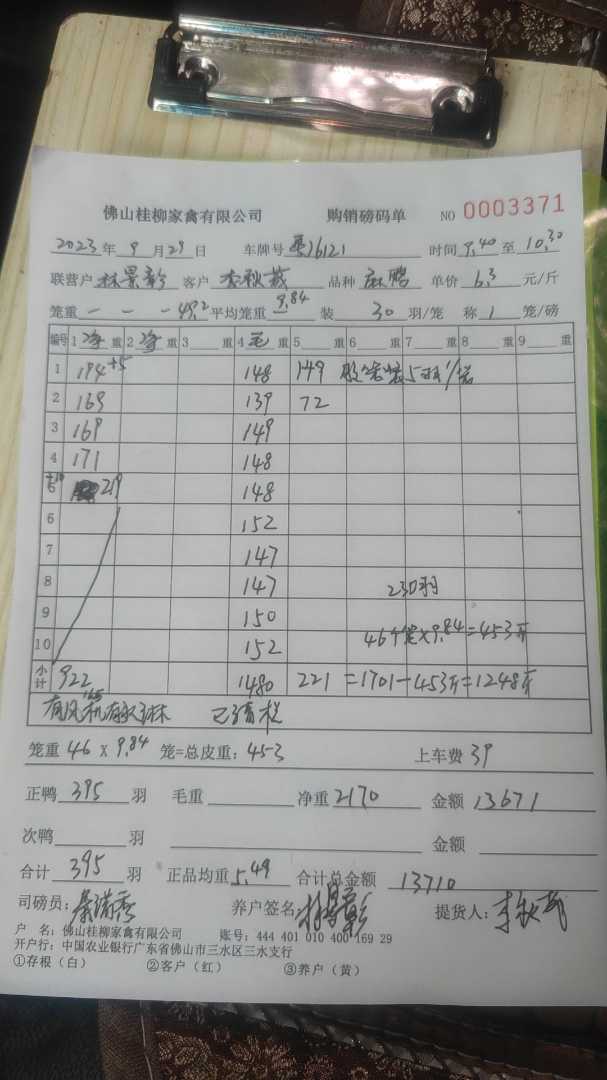 佛山桂柳家禽有限公司 购销磅码单 NO 0003371
2023年9月29日 车牌号 粤J6121 时间 9.40 至 10.30
联营户 林景彰 客户 李秋 品种 麻鸭 单价 6.3 元/斤
笼重 一 一 一 49.2 平均笼重 9.84 装 30 羽/笼 称 1 笼/磅
编号 1 净 重 2 净 重 3 重 4 毛 重 5 重 6 重 7 重 8 重 9 重
1 194 +5 148 149 装5羽/笼
2 169 139 72
3 169 149
4 171 148
5 +10 219 148
6 152
7 147
8 147 230羽
9 150
10 152 46个笼×9.84=453斤
小计 922 1480 221 =1701-453斤=1248斤
有风机
笼重 46 × 9.84 笼=总皮重: 453 上车费 39
正鸭 395 羽 毛重 净重 2170 金额 13671
次鸭 羽 金额
合计 395 羽 正品均重 5.49 合计总金额 13710
司磅员: 养户签名 林景彰 提货人:
户 名: 佛山桂柳家禽有限公司 账号: 444 401 010 400 169 29
开户行: 中国农业银行广东省佛山市三水区三水支行
①存根（白） ②客户（红） ③养户（黄）